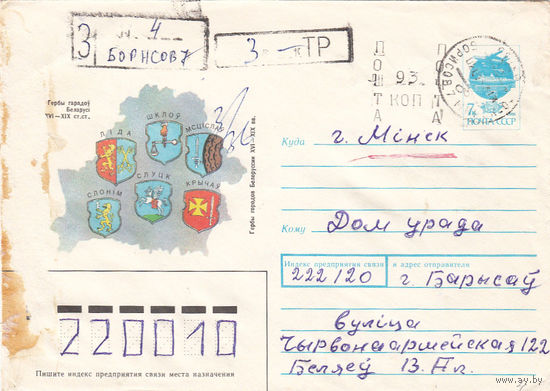 З № 4
БОРИСОВ 7
З — к ТР
ПОШТА
93
КОП
ПОЧТА СССР
Гербы гарадоў
Беларусі
XVI—XIX ст.ст.
ШКЛОЎ
ЛІДА
МСЦІСЛАЎ
СЛОНІМ
СЛУЦК
КРЫЧАЎ
Гербы городов Белоруссии XVI—XIX вв.
Куда г. Мінск
Кому Дом урада
Индекс предприятия связи и адрес отправителя
222120 г. Барысаў
вуліца
Чырвонаармейская 122
Беляеў 13. А.П.
220010
Пишите индекс предприятия связи места назначения
www.ay.by